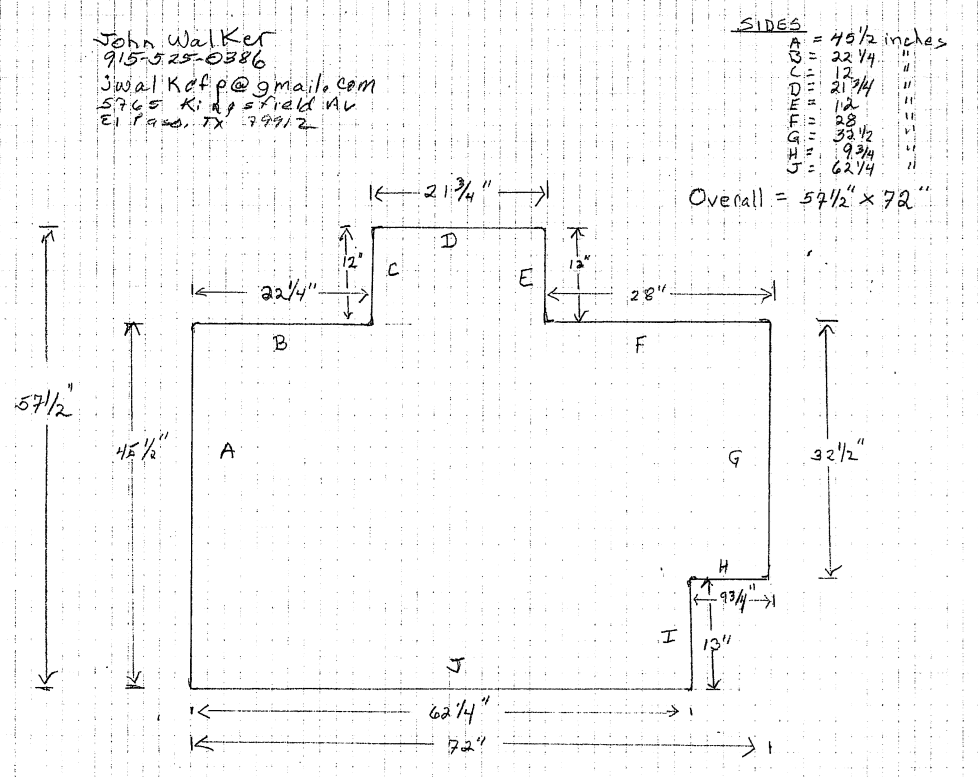 John Walker
915-525-0386
jwalkcfp@gmail.com
5765 Kingsfield Av
El Paso, TX 79912
SIDES
A = 45 1/2 inches
B = 22 1/4 "
C = 12 "
D = 21 3/4 "
E = 12 "
F = 28 "
G = 32 1/2 "
H = 9 3/4 "
J = 62 1/4 "
Overall = 57 1/2" x 72"
21 3/4"
D
12"
C
E
12"
22 1/4"
28"
B
F
57 1/2"
45 1/2"
A
G
32 1/2"
H
9 3/4"
I
13"
J
62 1/4"
72"